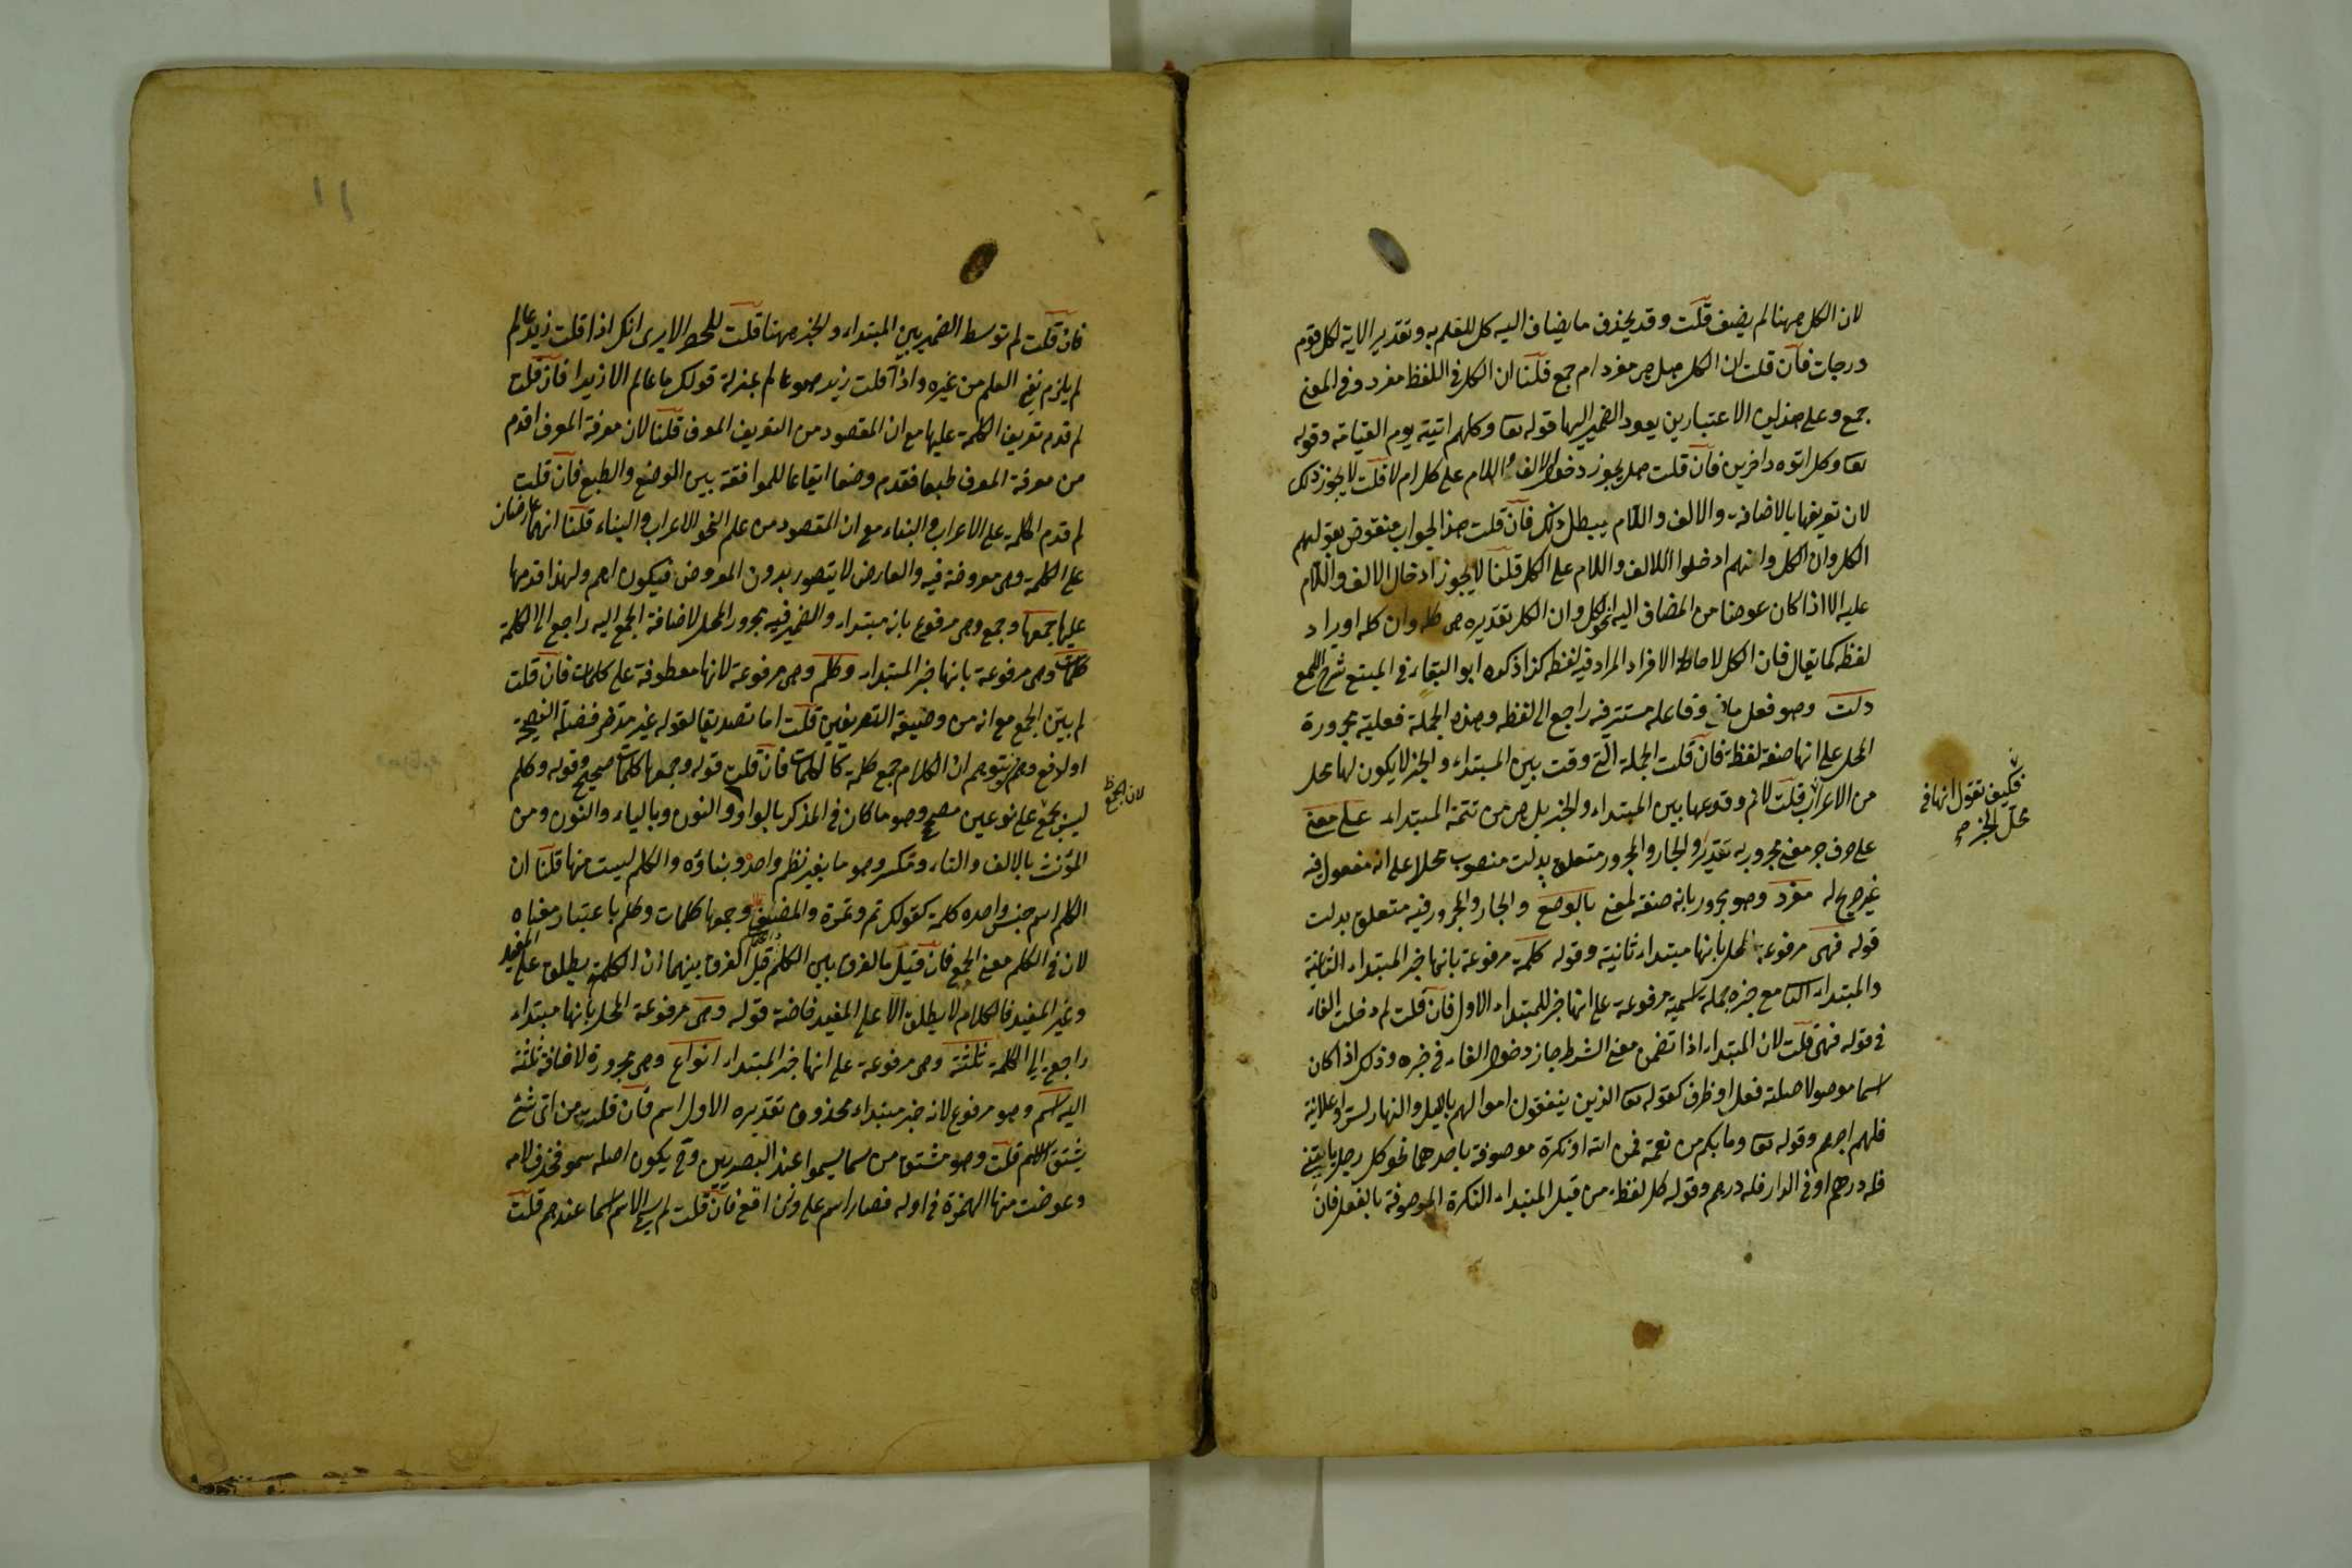 لان الكل ههنا لم يضف قلت وقد يحذف ما يضاف اليه كل للعلم به وتقدير الاية لكل قوم
درجات فان قلت ان الكل هل هي مفرد ام جمع قلنا ان الكل في اللفظ مفرد وفي المعنى
جمع وعلى هذين الاعتبارين يعود الضمير اليها قوله تعا وكلهم اتيه يوم القيامة وقوله
تعا وكل اتوه داخرين فان قلت هل يجوز دخول الالف واللام على كل ام لا قلت لا يجوز ذلك
لان تعريفها بالاضافة والالف واللام يبطل ذلك فان قلت هذا الجواب منقوض بقولهم
الكل وان الكل وانهم ادخلوا الالف واللام على الكل قلنا لا يجوز ادخال الالف واللام
عليه الا اذا كان عوضا من المضاف اليه نحو الكل وان الكل تقديره هي كله وان كله اورد
لفظه كما يقال فان الكل لاحاطة الافراد المراد فيه لفظه كذا ذكره ابو البقاء في المبتع شرح اللمع
دلت وهو فعل ماض وفاعله مستتر فيه راجع الى لفظه وهذه الجملة فعلية مجرورة
المحل على انها صفة لفظة فان قلت الجملة التي وقت بين المبتداء والخبر لا يكون لها محل
من الاعراب قلت لانم وقوعها بين المبتداء والخبر بل هي من تتمة المبتداء على معنى
على حرف جر معنى مجرور به تقديرا والجار والمجرور متعلق بدلت منصوب محلا على انه مفعول فيه
غير صريح له مفرد وهو مجرور بانه صفة لمعنى بالوضع والجار والمجرور فيه متعلق بدلت
قوله فهى مرفوعة المحل بانها مبتداء ثانية وقوله كلمة مرفوعة بانها خبر المبتداء الثانية
والمبتداء الثا مع خبره جملة اسمية مرفوعة على انها خبر للمبتداء الاول فان قلت لم دخلت الفاء
في قوله فهى قلت لان المبتداء اذا تضمن معنى الشرط جاز دخول الفاء في خبره وذلك اذا كان
اسما موصولا صلته فعل او ظرف كقوله تعا الذين ينفقون اموالهم بالليل والنهار سرا وعلانية
فلهم اجرهم وقوله تعا وما بكم من نعمة فمن الله او نكرة موصوفة باحدهما نحو كل رجل ياتينى
فله درهم او في الدار فله درهم وقوله كل لفظة من قبيل المبتداء النكرة الموصوفة بالفعل فان
فكيف تقول انها في
محل الجر
فان قلت لم توسط الضمير بين المبتداء والخبر ههنا قلت للحصر الا يرى انك اذا قلت زيد عالم
لم يلزم نفى العلم من غيره واذا قلت زيد هو عالم بمنزلة قولك ما عالم الا زيدا فان قلت
لم قدم تعريف الكلمة عليها مع ان المقصود من التعريف المعرف قلنا لان معرفة المعرف اقدم
من معرفة المعرف طبعا فقدم وضعا ايقاعا للموافقة بين الوضع والطبع فان قلت
لم قدم الكلمة على الاعراب والبناء مع ان المقصود من علم النحو الاعراب والبناء قلنا انهما عارضان
على الكلمة وهى معروضة فيه والعارض لا يتصور بدون المعروض فيكون اهم ولهذا قدمها
عليها جمعها وجمع وهى مرفوع بانه مبتداء والضمير فيه مجرور المحل لاضافة الجمع اليه راجع الى الكلمة
كلمات وهى مرفوعة بانها خبر المبتداء وكلم وهى مرفوعة لانها معطوفة على كلمات فان قلت
لم بين الجمع مع انه من وضيفة التصريفين قلت اما تصديقا لقوله غير مدخر فضلة النصيحة
او لدفع وهم يتوهم ان الكلام جمع كلمة كالكلمات فان قلت قوله وجمعها كلمات صحيح وقوله وكلم
ليس بجمع على نوعين مصحح وهو ما كان في المذكر بالواو والنون وبالياء والنون ومن
المؤنث بالالف والتاء ومكسر وهو ما يغير نظم واحده وبناؤه والكلم ليست منها قلنا ان
الكلم اسم جنس واحده كلمة كقولك تمر وتمرة والمصنف وجمعها كلمات وكلم باعتبار معناه
لان في الكلم معنى الجمع فان قيل ما الفرق بين الكلم قيل الفرق بينهما ان الكلمة يطلق على المفيد
وغير المفيد فالكلام لا يطلق الا على المفيد خاصة قوله وهى مرفوعة المحل بانها مبتداء
راجع الى الكلمة ثلثة وهى مرفوعة على انها خبر المبتداء انواع وهى مجرورة لاضافة ثلثة
اليه اسم وهو مرفوع لانه خبر مبتداء محذوف تقديره الاول اسم فان قلت من اى شئ
يشتق الاسم قلت وهو مشتق من سما يسموا عند البصريين وح يكون اصله سمو فحذف لامه
وعوضت منها الهمزة في اوله فصار اسم على وزن افع فان قلت لم سمى الاسم اسما عندهم قلت
لان الجمع
۱۱